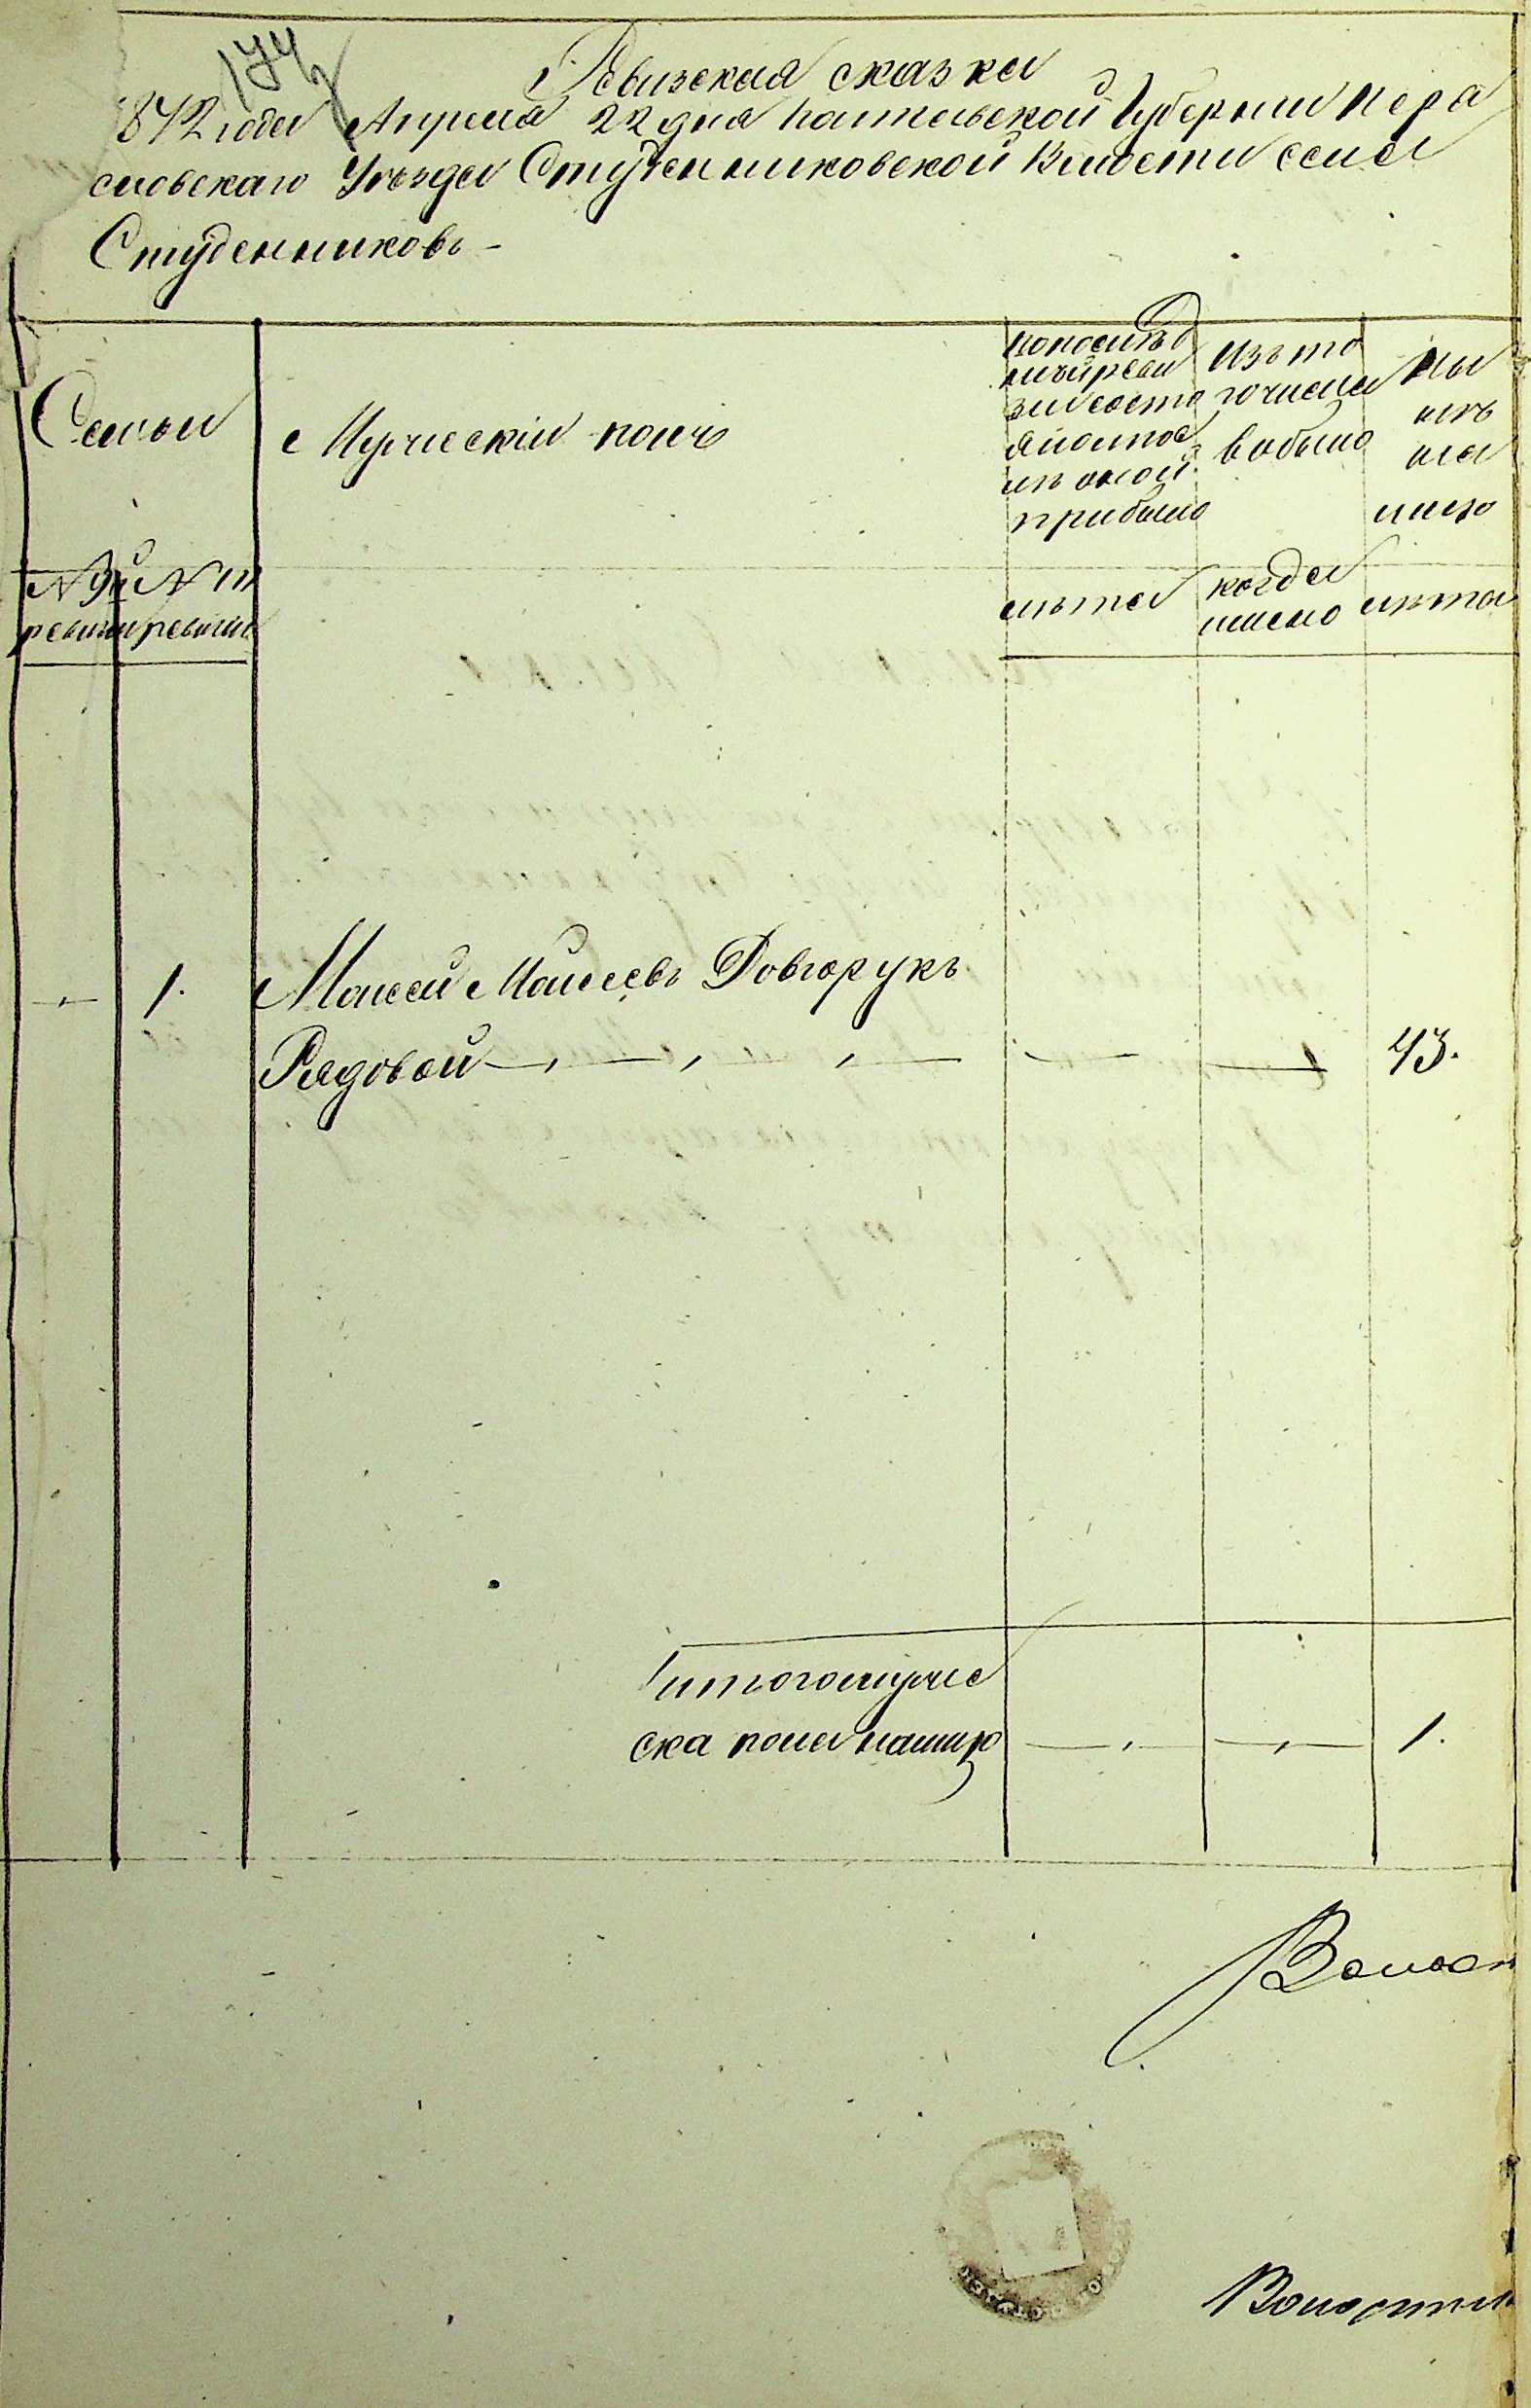 174
Ревизская сказка
1872 года Апреля 22 дня Полтавской Губернии Пера
словскаго Уѣзда Студенниковской Волости села
Студенниковъ -
Семьи
Мужескій полъ
По послѣд
ней реви
зіи состо
яло и пос
лѣ оной
прибыло
Изъ то
го числа
выбыло
Ны
нѣ
на
лицо
№ 9й № 10
ревизіи ревизіи
лѣта
когда
именно
лѣта
1. Моисей Моисеевъ Довгорукъ
Рядовой 43.
Итого муже
ска пола налицо 1.
Волост
Волостн